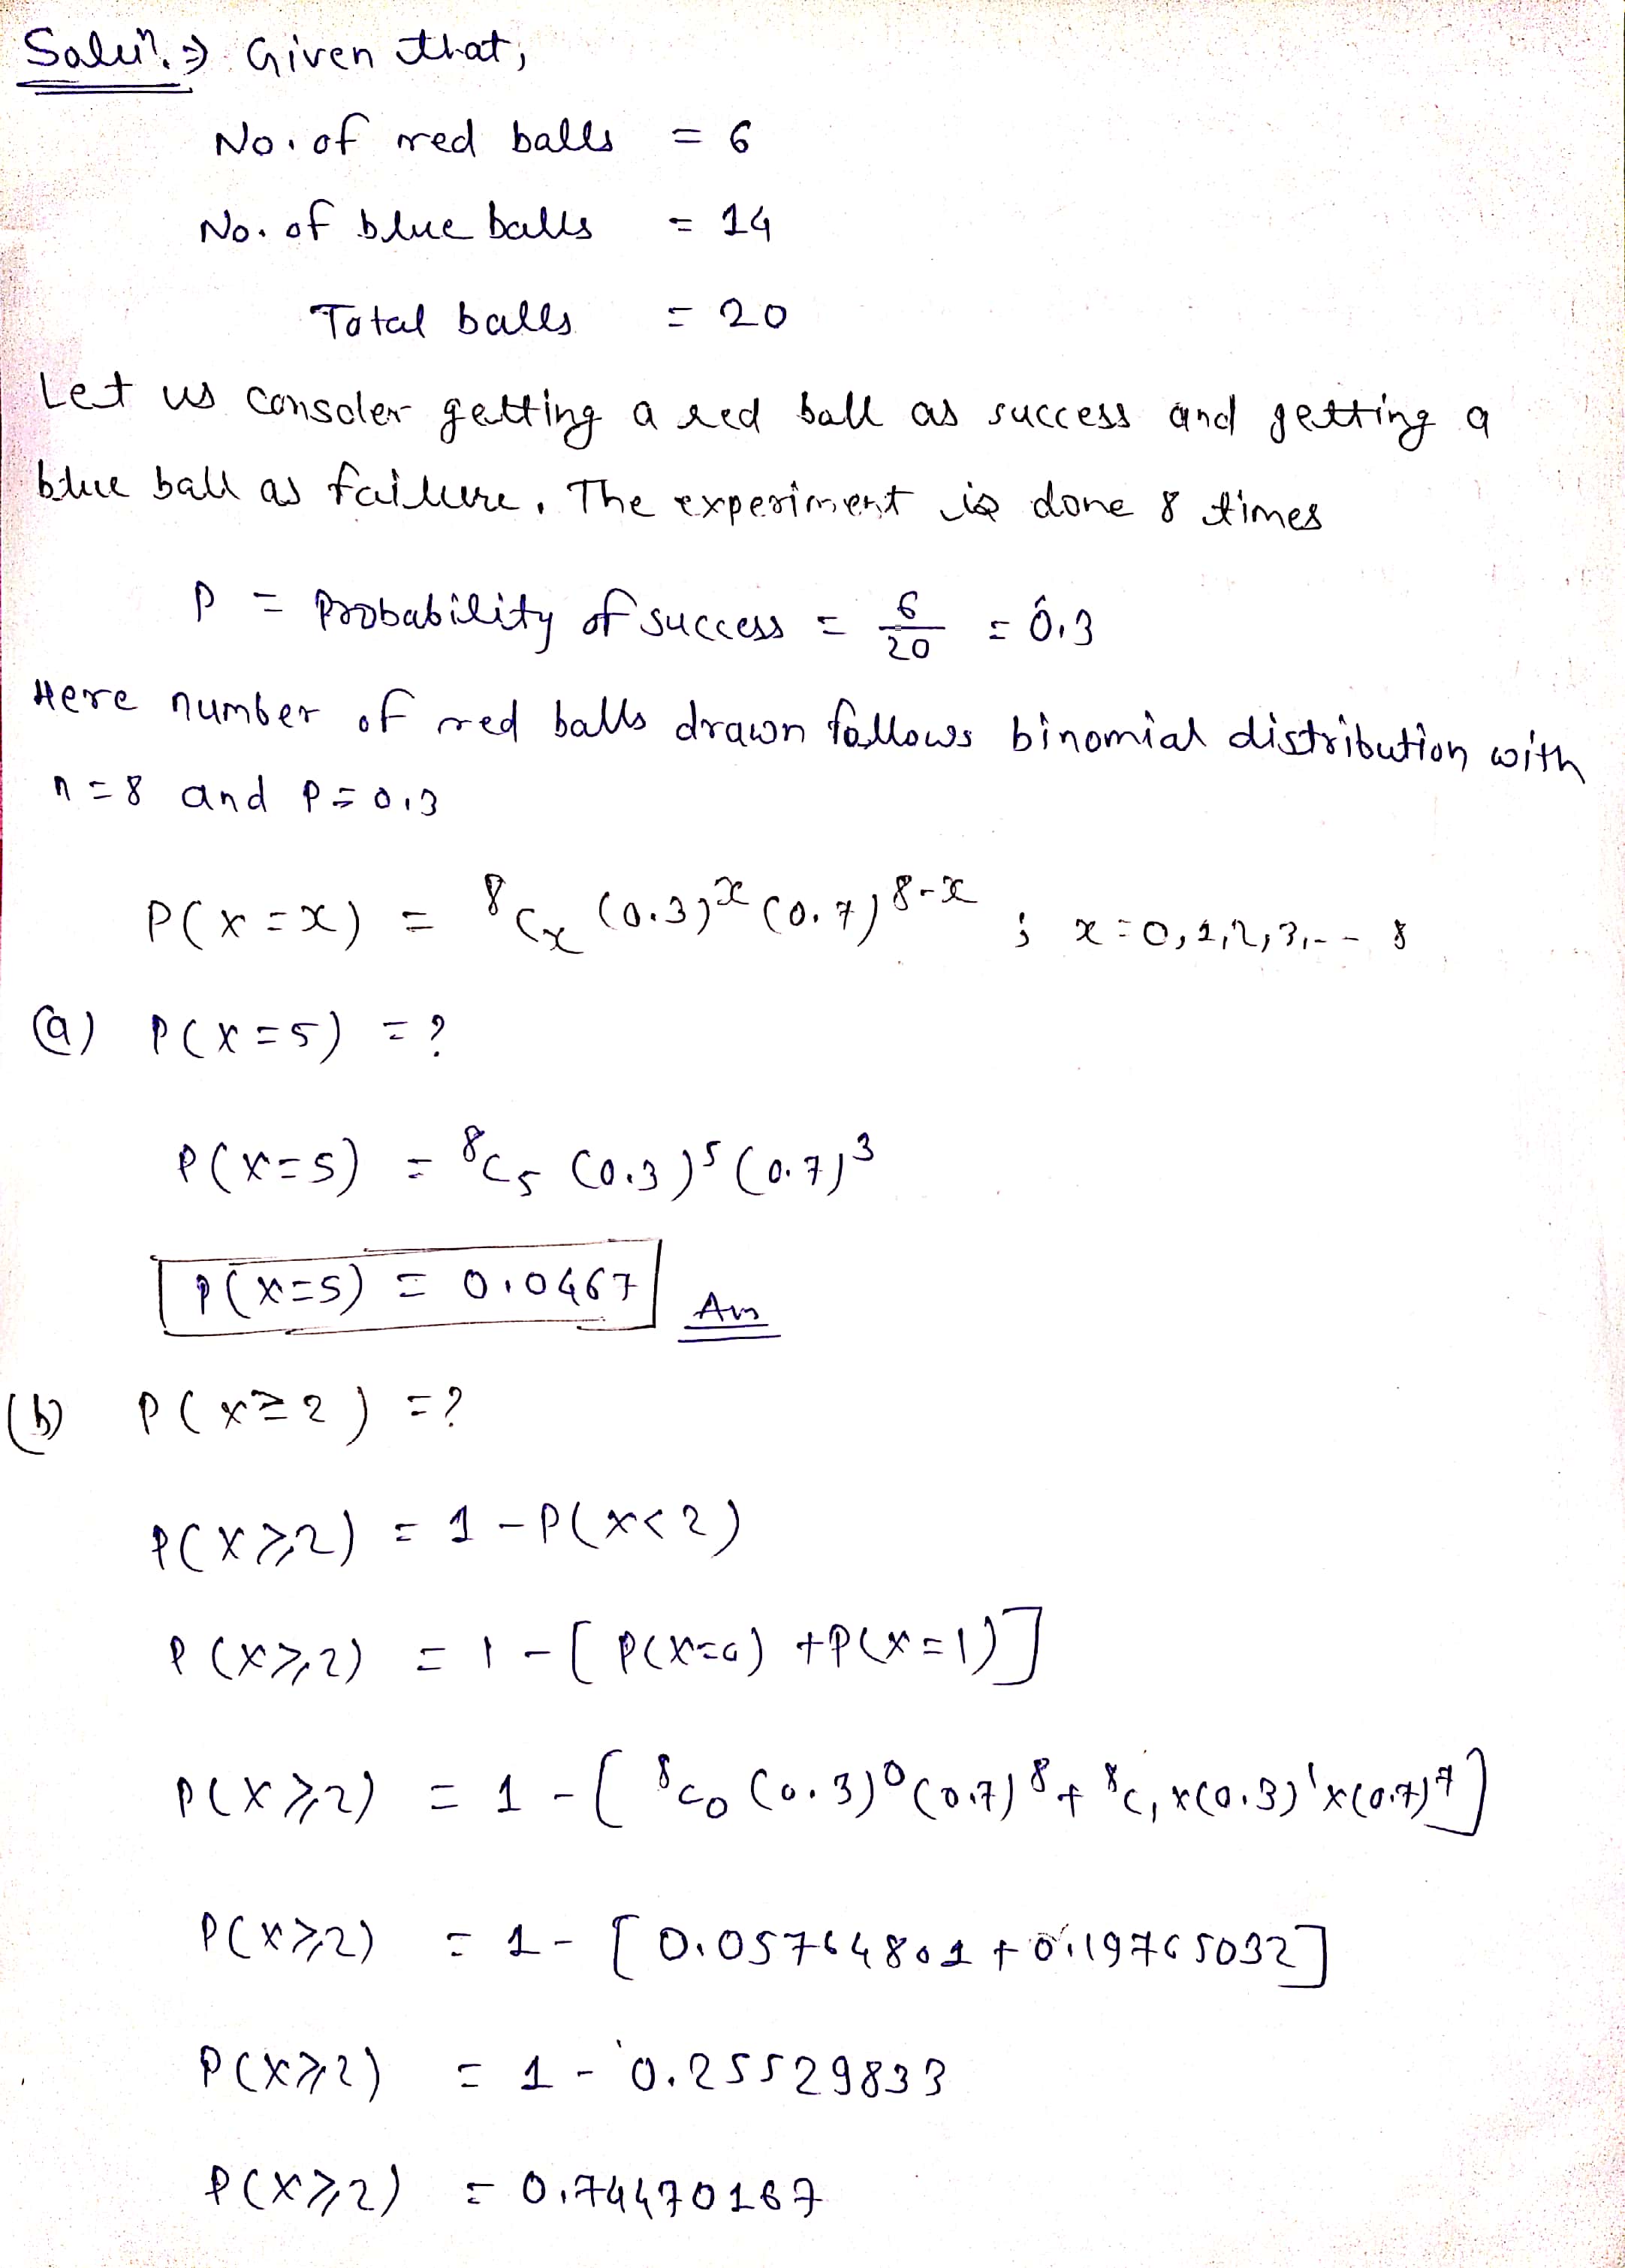 Soluⁿ. ⇒ Given that,
No. of red balls = 6
No. of blue balls = 14
Total balls = 20
Let us consder getting a red ball as success and getting a
blue ball as failure. The experiment is done 8 times
P = Probability of success = 6/20 = 0.3
Here number of red balls drawn follows binomial distribution with
n = 8 and P = 0.3
P(X = x) = ⁸Cₓ (0.3)ˣ (0.7)⁸⁻ˣ ; x = 0, 1, 2, 3, - - 8
(a) P(X = 5) = ?
P(X = 5) = ⁸C₅ (0.3)⁵ (0.7)³
P(X = 5) = 0.0467 Ans
(b) P(X ≥ 2) = ?
P(X ≥ 2) = 1 - P(X < 2)
P(X ≥ 2) = 1 - [P(X=0) + P(X=1)]
P(X ≥ 2) = 1 - [⁸C₀ (0.3)⁰ (0.7)⁸ + ⁸C₁ × (0.3)¹ × (0.7)⁷]
P(X ≥ 2) = 1 - [0.05764801 + 0.19765032]
P(X ≥ 2) = 1 - 0.25529833
P(X ≥ 2) = 0.74470167